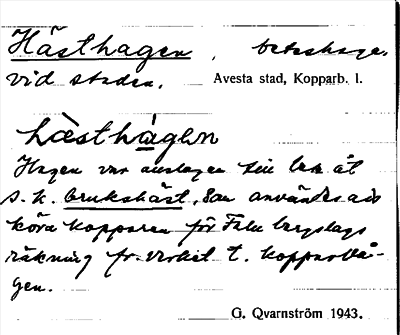 Hästhagen, beteshage.
vid staden. Avesta stad, Kopparb. l.
hästhágen
Hagen var anslagen till bete åt
s. k. brukshäst, som användes att
köra kopparen för Falu bergslags
räkning fr. verket t. kopparvå-
gen.
G. Qvarnström 1943.